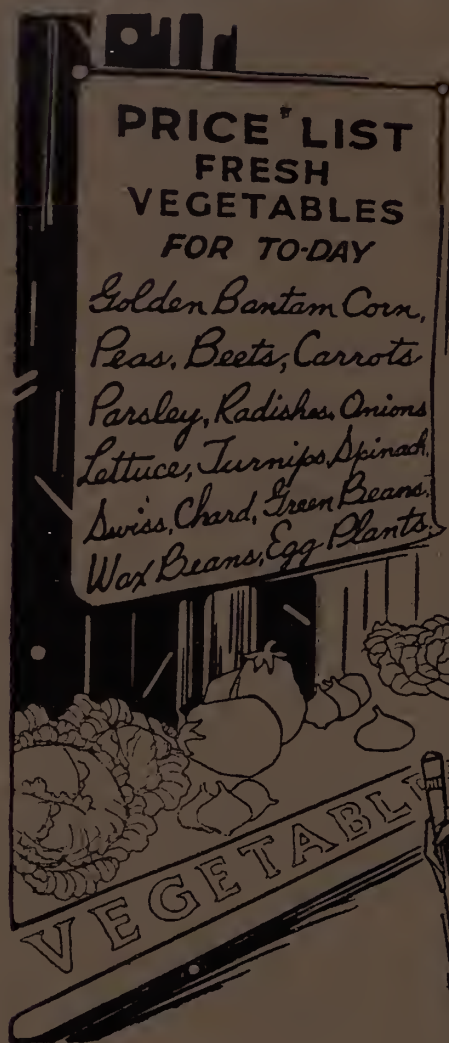 PRICE LIST
FRESH
VEGETABLES
FOR TO-DAY
Golden Bantam Corn,
Peas, Beets, Carrots
Parsley, Radishes, Onions
Lettuce, Turnips, Spinach,
Swiss, Chard, Green Beans,
Wax Beans, Egg Plants.
VEGETABL